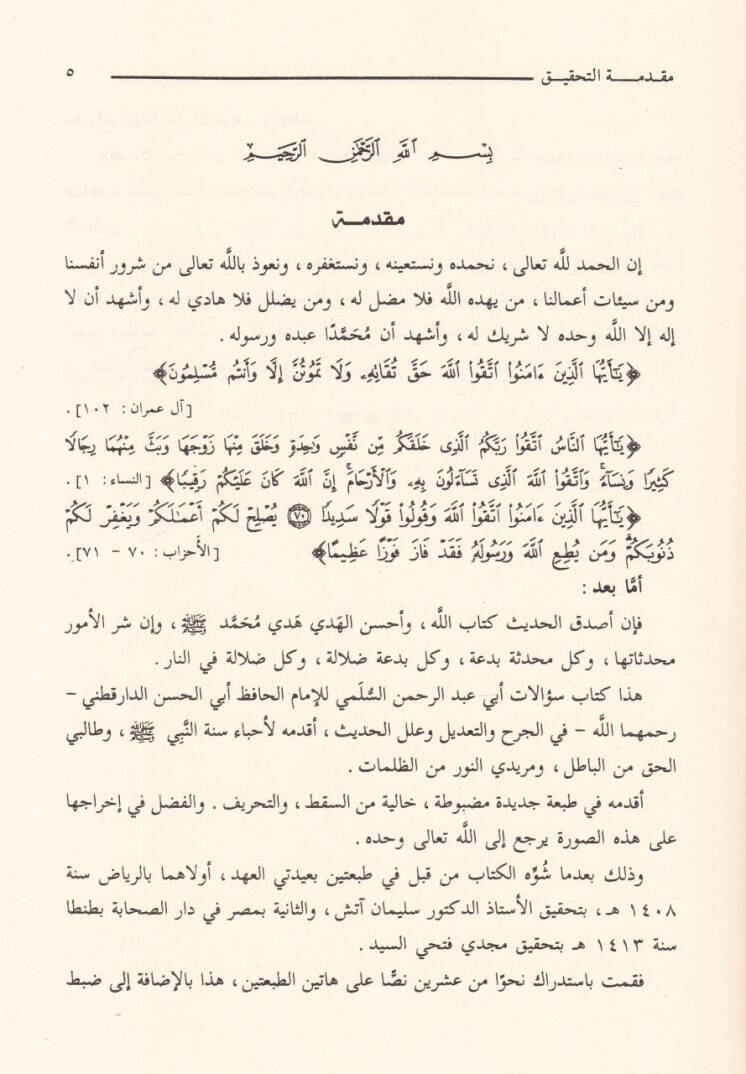 مقدمة التحقيق ٥
بِسْمِ اللَّهِ الرَّحْمَنِ الرَّحِيمِ
مقدمة
إن الحمد للَّه تعالى، نحمده ونستعينه، ونستغفره، ونعوذ باللَّه تعالى من شرور أنفسنا
ومن سيئات أعمالنا، من يهده اللَّه فلا مضل له، ومن يضلل فلا هادي له، وأشهد أن لا
إله إلا اللَّه وحده لا شريك له، وأشهد أن مُحَمَّدًا عبده ورسوله.
﴿يَٰٓأَيُّهَا الَّذِينَ ءَامَنُوا۟ اتَّقُوا۟ اللَّهَ حَقَّ تُقَاتِهِۦ وَلَا تَمُوتُنَّ إِلَّا وَأَنتُم مُّسْلِمُونَ﴾
[آل عمران: ١٠٢].
﴿يَٰٓأَيُّهَا النَّاسُ اتَّقُوا۟ رَبَّكُمُ الَّذِى خَلَقَكُم مِّن نَّفْسٍ وَٰحِدَةٍ وَخَلَقَ مِنْهَا زَوْجَهَا وَبَثَّ مِنْهُمَا رِجَالًا
كَثِيرًا وَنِسَآءً ۚ وَاتَّقُوا۟ اللَّهَ الَّذِى تَسَآءَلُونَ بِهِۦ وَالْأَرْحَامَ ۚ إِنَّ اللَّهَ كَانَ عَلَيْكُمْ رَقِيبًا﴾ [النساء: ١].
﴿يَٰٓأَيُّهَا الَّذِينَ ءَامَنُوا۟ اتَّقُوا۟ اللَّهَ وَقُولُوا۟ قَوْلًا سَدِيدًا ۝٧٠ يُصْلِحْ لَكُمْ أَعْمَٰلَكُمْ وَيَغْفِرْ لَكُمْ
ذُنُوبَكُمْ ۗ وَمَن يُطِعِ اللَّهَ وَرَسُولَهُۥ فَقَدْ فَازَ فَوْزًا عَظِيمًا﴾ [الأَحزاب: ٧٠ - ٧١].
أمَّا بعد:
فإن أصدق الحديث كتاب اللَّه، وأحسن الهَدي هَدي مُحَمَّد ﷺ، وإن شر الأمور
محدثاتها، وكل محدثة بدعة، وكل بدعة ضلالة، وكل ضلالة في النار.
هذا كتاب سؤالات أبي عبد الرحمن السُّلَمي للإمام الحافظ أبي الحسن الدارقطني -
رحمهما اللَّه - في الجرح والتعديل وعلل الحديث، أقدمه لأحباء سنة النَّبي ﷺ، وطالبي
الحق من الباطل، ومريدي النور من الظلمات.
أقدمه في طبعة جديدة مضبوطة، خالية من السقط، والتحريف. والفضل في إخراجها
على هذه الصورة يرجع إلى اللَّه تعالى وحده.
وذلك بعدما شُوِّه الكتاب من قبل في طبعتين بعيدتي العهد، أولاهما بالرياض سنة
١٤٠٨ هـ، بتحقيق الأستاذ الدكتور سليمان آتش، والثانية بمصر في دار الصحابة بطنطا
سنة ١٤١٣ هـ بتحقيق مجدي فتحي السيد.
فقمت باستدراك نحوًا من عشرين نصًّا على هاتين الطبعتين، هذا بالإضافة إلى ضبط